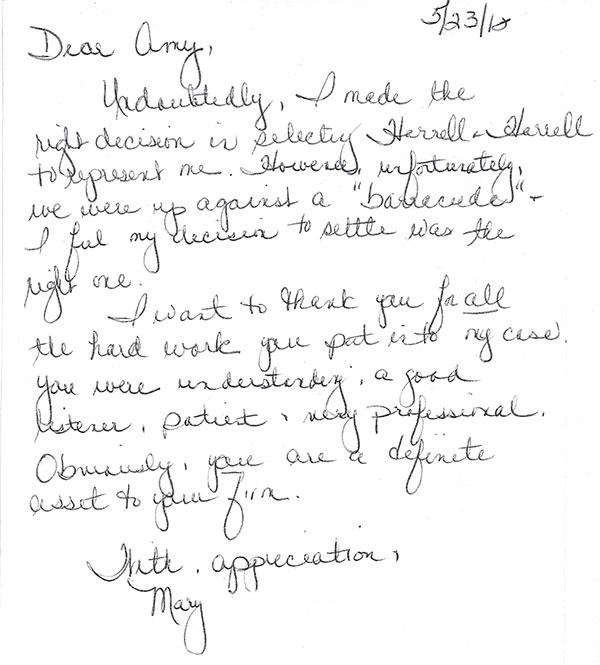 5/23/18
Dear Amy,
Undoubtedly, I made the
right decision in selecting Harrell & Harrell
to represent me. However, unfortunately,
we were up against a "barracuda" -
I feel my decision to settle was the
right one.
I want to thank you for all
the hard work you put into my case.
You were understanding, a good
listener, patient & very professional.
Obviously, you are a definite
asset to your firm.
With appreciation,
Mary